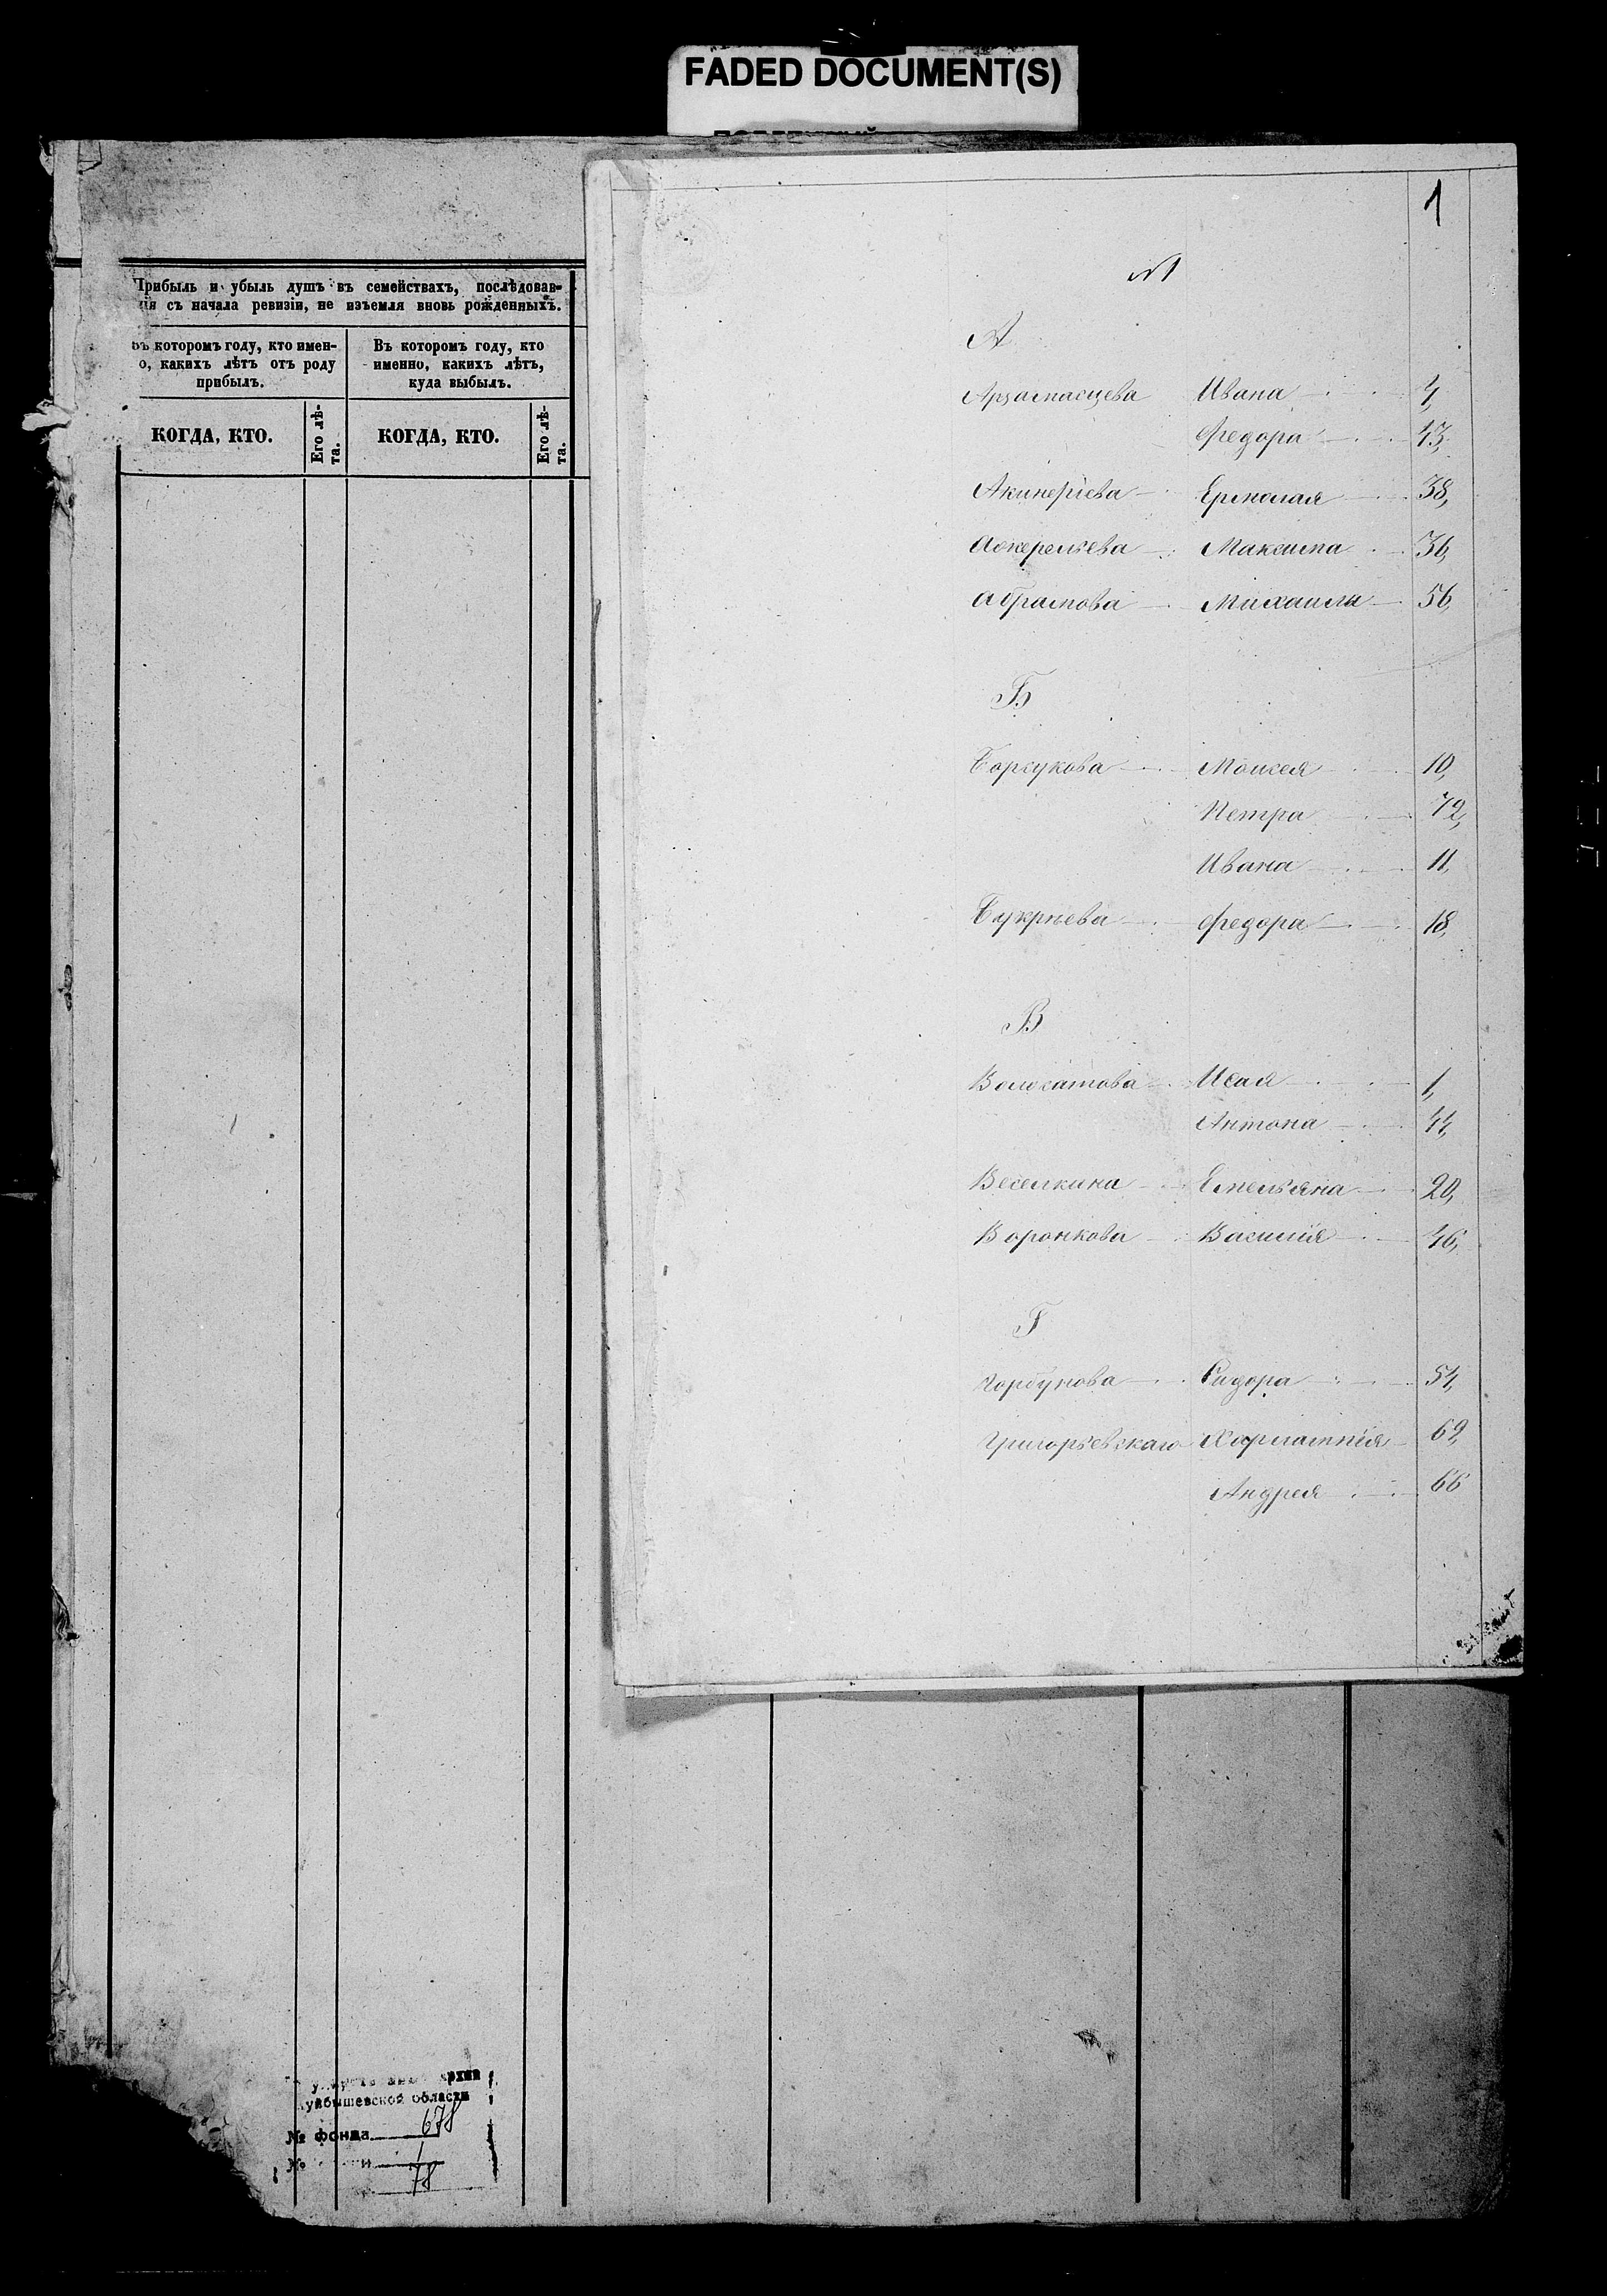 FADED DOCUMENT(S)
Прибыль и убыль душъ въ семействахъ, послѣдовав-
шія съ начала ревизіи, не изъемля вновь рожденныхъ.
Въ которомъ году, кто имен-
о, какихъ лѣтъ отъ роду
прибылъ.
Въ которомъ году, кто
именно, какихъ лѣтъ,
куда выбылъ.
КОГДА, КТО.
Его лѣ-
та.
КОГДА, КТО.
Его лѣ-
та.
1
№
А
Арзамасцева Ивана 4,
Федора 43,
Акинфіева Ермолая 38,
Максима 36,
Абрамова Михаила 56,
Б
Борсукова Моисея 10,
Петра 72,
Ивана 11,
Букрѣева Федора 18,
В
Волосатова Исая 1,
Антона 44,
Веселкина Емельяна 20,
Воронкова Василія 46,
Г
Горбунова Сидора 54,
Григорьевскаго Харлампія 69,
Андрея 66
архив
Куйбышевской области
№ фонда 678
№ 1
78